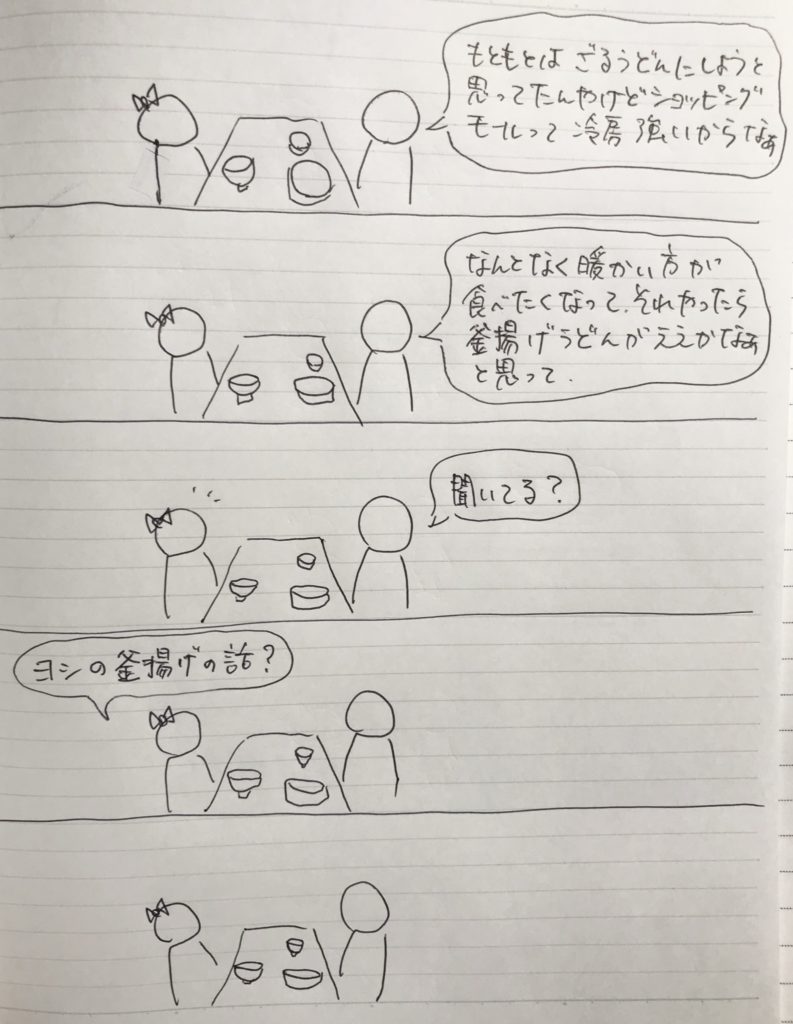 もともとは ざるうどんにしようと
思ってたんやけどショッピング
モールって 冷房 強いからなぁ
なんとなく 暖かい 方 が
食べたくなって、それやったら
釜揚げうどんがええかなぁ
と思って、
聞いてる？
ヨシの釜揚げの話？